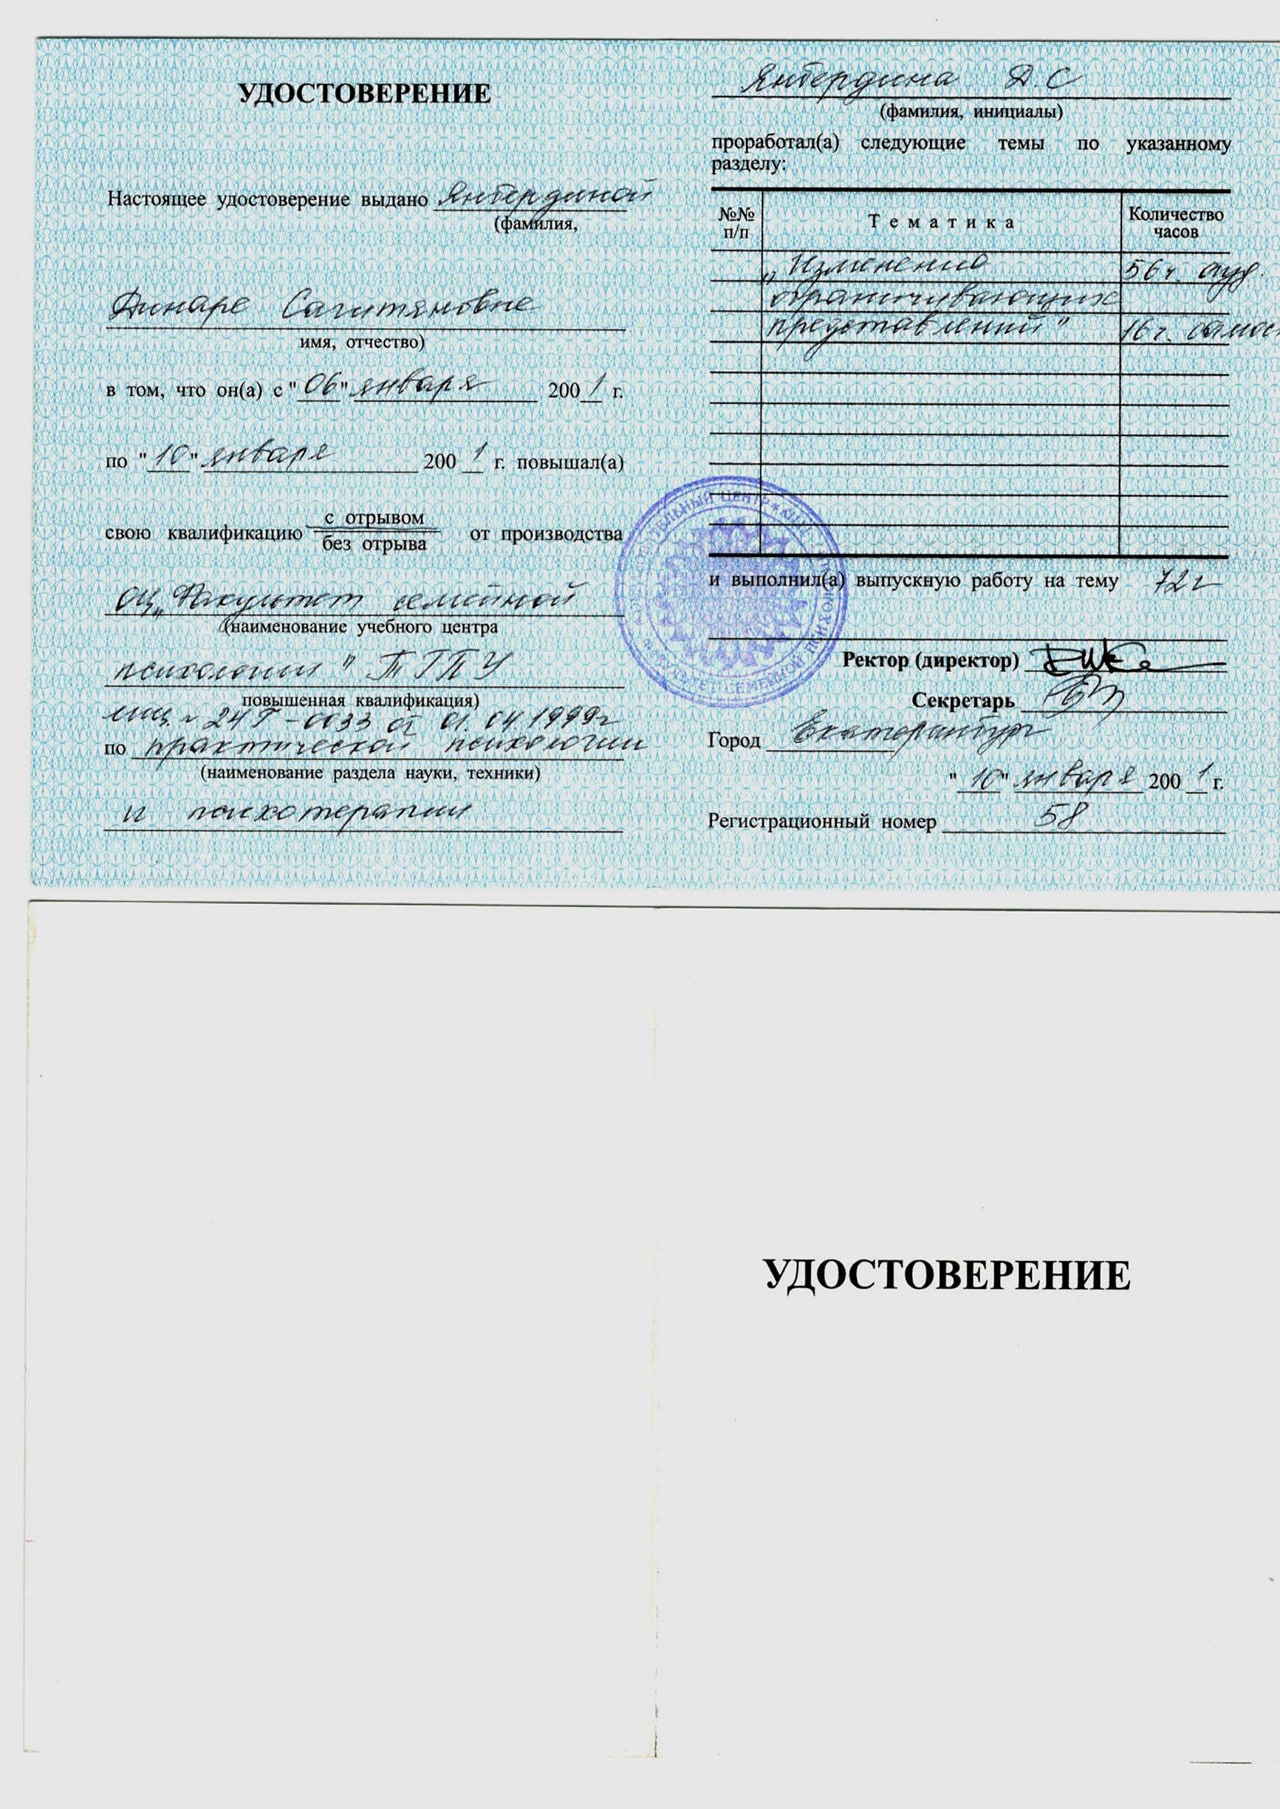 УДОСТОВЕРЕНИЕ
Настоящее удостоверение выдано Янбердиной
(фамилия,
Динаре Сагитяновне
имя, отчество)
в том, что он(а) с "06" января 2001 г.
по "10" января 2001 г. повышал(а)
свою квалификацию с отрывом
без отрыва от производства
ОЦ „Факультет семейной
(наименование учебного центра
психологии" ТГПУ
повышенная квалификация)
лиц. № 24Г-0033 от 01.04.1999г
по практической психологии
(наименование раздела науки, техники)
и психотерапии
Янбердина Д.С
(фамилия, инициалы)
проработал(а) следующие темы по указанному
разделу:
№№ п/п Тематика Количество часов
„Изменение 56ч. ауд.
ограничивающих
представлений" 16ч. самос
и выполнил(а) выпускную работу на тему 72г
Ректор (директор)
Секретарь
Город Екатеринбург
"10" января 2001 г.
Регистрационный номер 58
УДОСТОВЕРЕНИЕ